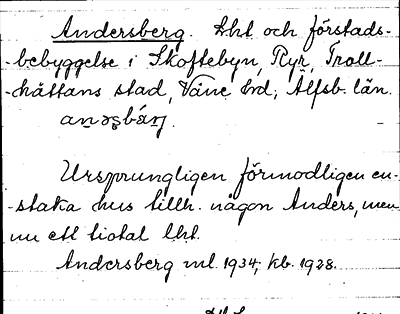 Andersberg. Lht och förstads-
-bebyggelse i Skoftebyn, Ryr, Troll-
-hättans stad, Väne hd, Älfsb. län.
Ursprungligen förmodligen en-
-staka hus tillh. någon Anders, men
nu ett tiotal lht.
Andersberg ml. 1934; kb. 1928.